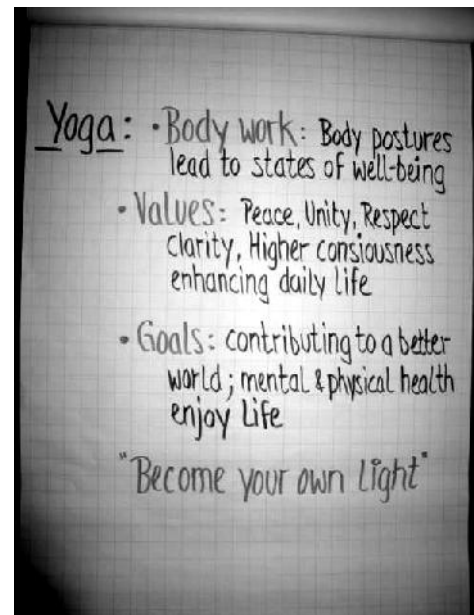 Yoga: • Body work: Body postures
lead to states of well-being
• Values: Peace, Unity, Respect
clarity, Higher consiousness
enhancing daily life
• Goals: contributing to a better
world; mental & physical health
enjoy Life
"Become your own light"